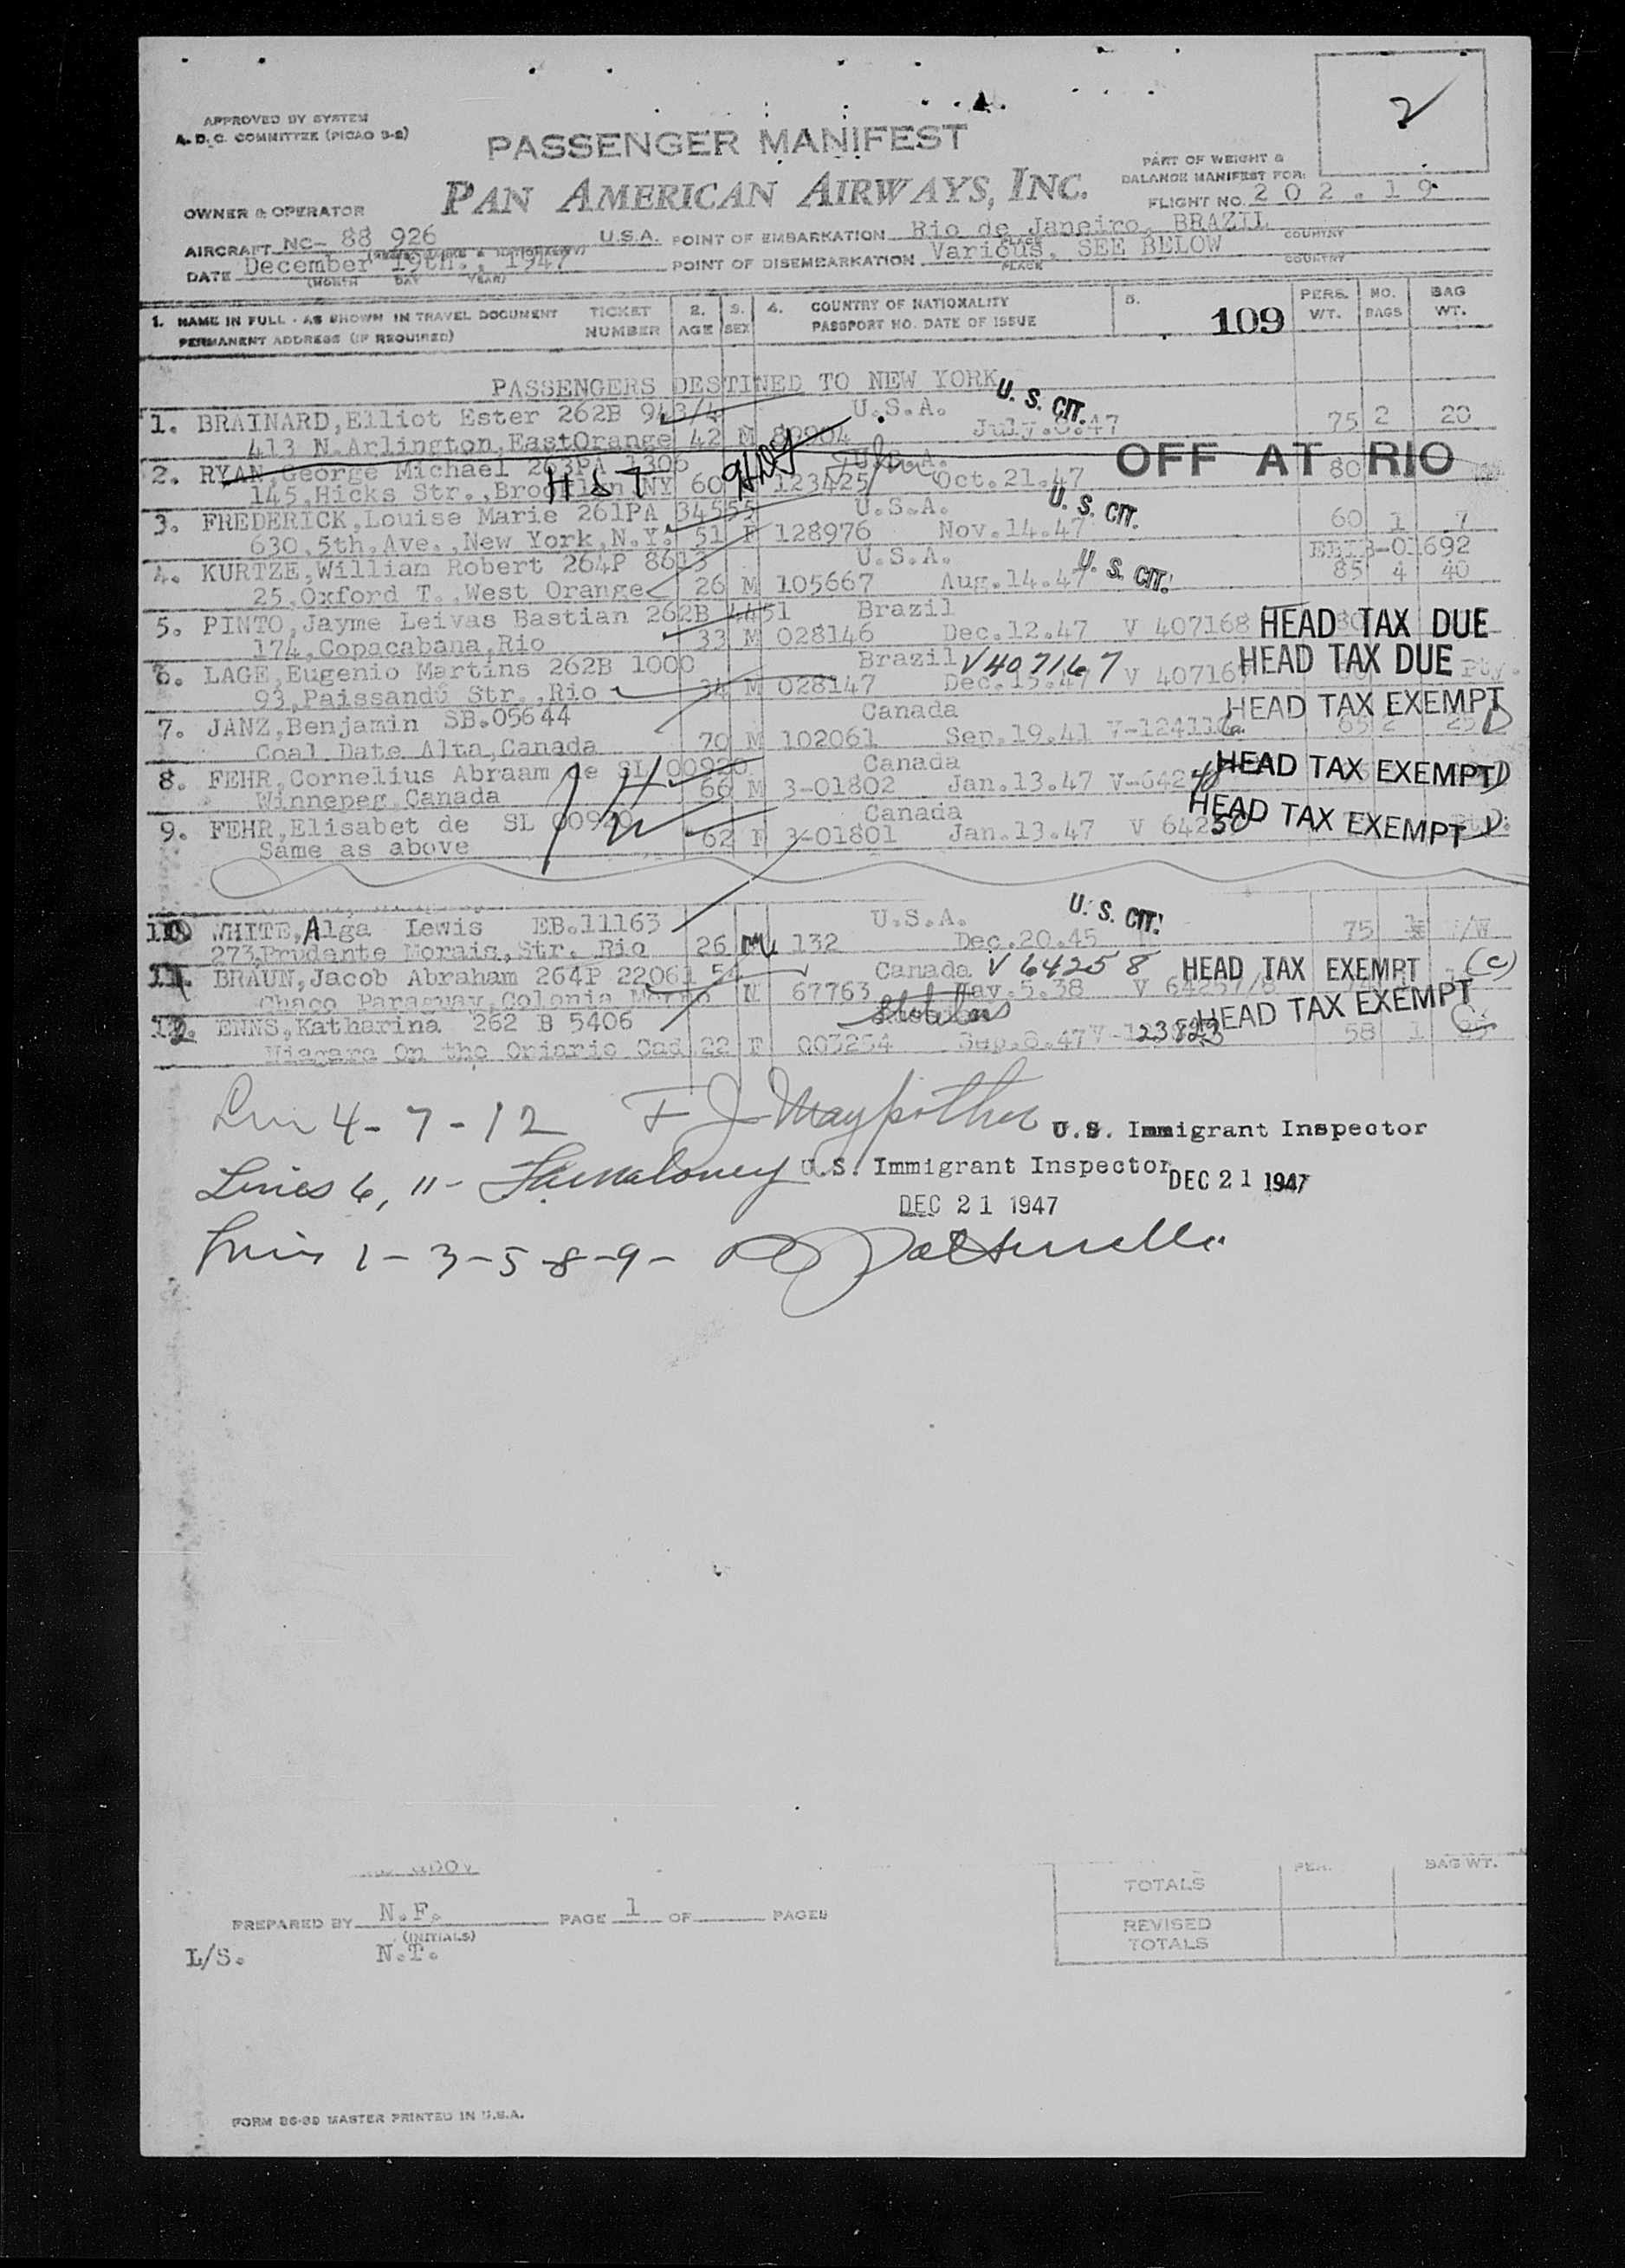 2
APPROVED BY SYSTEM
A. D. C. COMMITTEE (PICAO 3-2)
PASSENGER MANIFEST
PART OF WEIGHT &
BALANCE MANIFEST FOR:
OWNER & OPERATOR
PAN AMERICAN AIRWAYS, INC.
FLIGHT NO. 202.19
AIRCRAFT NC- 88 926 U.S.A. POINT OF EMBARKATION Rio de Janeiro, BRAZIL COUNTRY
DATE December 19th., 1947 POINT OF DISEMBARKATION Various, SEE BELOW COUNTRY
(MONTH DAY YEAR) PLACE
1. NAME IN FULL - AS SHOWN IN TRAVEL DOCUMENT TICKET 2. 3. 4. COUNTRY OF NATIONALITY 5. PERS. NO. BAG
PERMANENT ADDRESS (IF REQUIRED) NUMBER AGE SEX PASSPORT NO. DATE OF ISSUE 109 WT. BAGS WT.
PASSENGERS DESTINED TO NEW YORK
1. BRAINARD,Elliot Ester 262B 943/4 U.S.A. U. S. CIT.
413 N.Arlington,EastOrange 42 M July.8.47 75 2 20
2. RYAN,George Michael 263PA 1306 OFF AT RIO
145,Hicks Str.,Brooklin NY 60 123425 Oct.21.47 80
3. FREDERICK,Louise Marie 261PA 34555 U.S.A. U. S. CIT.
630,5th.Ave.,New York,N.Y. 51 F 128976 Nov.14.47 60 1 7
4. KURTZE,William Robert 264P 8613 U.S.A. U. S. CIT.
25,Oxford T.,West Orange 26 M 105667 Aug.14.47 85 4 40
5. PINTO,Jayme Leivas Bastian 262B 4451 Brazil
174,Copacabana,Rio 33 M 028146 Dec.12.47 V 407168 HEAD TAX DUE
6. LAGE,Eugenio Martins 262B 1000 Brazil V407167 HEAD TAX DUE
93,Paissandú Str.,Rio 34 M 028147 Dec.15.47 V 40716
7. JANZ,Benjamin SB.05644 Canada HEAD TAX EXEMPT
Coal Date Alta,Canada 70 M 102061 Sep.19.41 65 2 25 D
8. FEHR,Cornelius Abraam de SL 00920 Canada HEAD TAX EXEMPT D
Winnepeg Canada 66 M 3-01802 Jan.13.47
9. FEHR,Elisabet de SL 00920 Canada HEAD TAX EXEMPT D
Same as above 62 F 3-01801 Jan.13.47 V 64250
10. WHITE,Alga Lewis EB.11163 U.S.A. U. S. CIT.
273,Prudente Morais,Str. Rio 26 M 132 Dec.20.45 75
11. BRAUN,Jacob Abraham 264P 22061 54 Canada V 64258 HEAD TAX EXEMPT (C)
Chaco Paraguay,Colonia M 67763 May.5.38 V 64257/8
12. ENNS,Katharina 262 B 5406 HEAD TAX EXEMPT
Niagara On the Ontario Cad 22 F 003254 Sep.8.47 58 1
4-7-12 U.S. Immigrant Inspector
Lines 6, 11- U.S. Immigrant Inspector DEC 21 1947
DEC 21 1947
1-3-5-8-9-
TOTALS PER. BAG WT.
PREPARED BY N.F. PAGE 1 OF PAGES
(INITIALS)
REVISED
TOTALS
L/S. N.T.
FORM 86-89 MASTER PRINTED IN U.S.A.